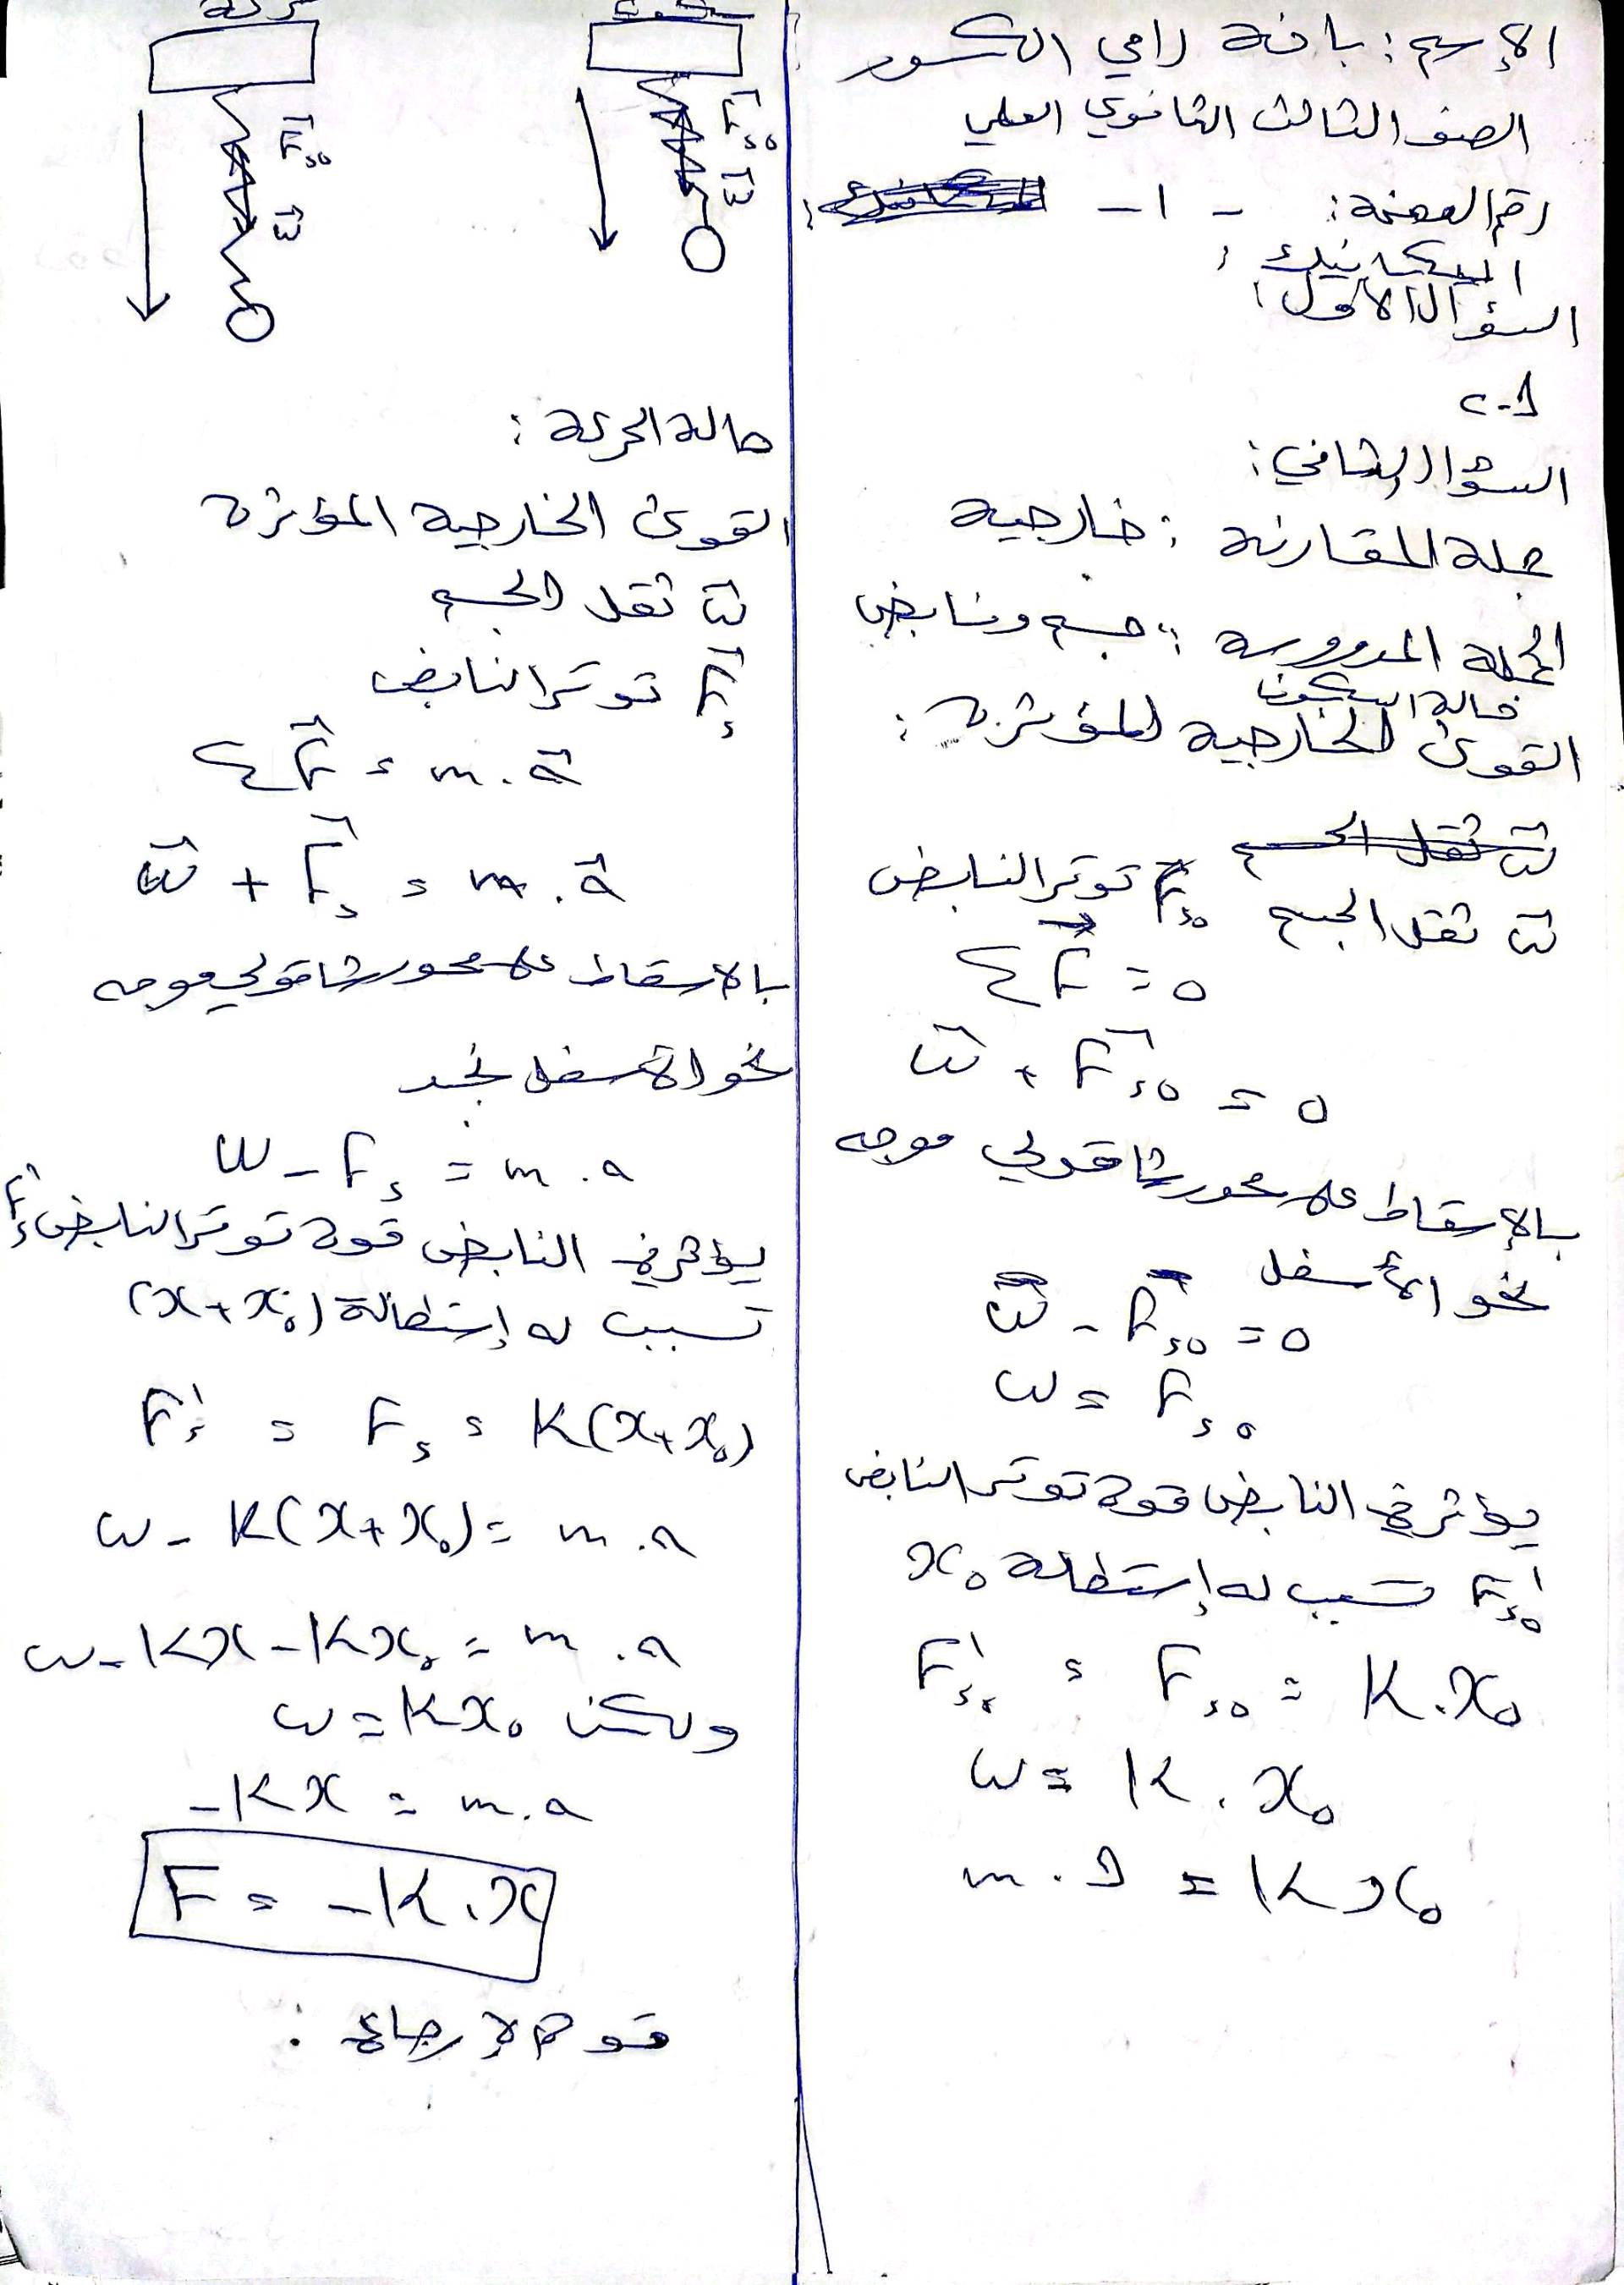 الإسم: بانة رامي الكسور
الصف الثالث الثانوي العلمي
رقم الصفحة: - 1 -
الميكانيك:
السؤال الأول:
1-c
السؤال الثاني:
جملة المقارنة: خارجية
الجملة المدروسة: جسم ونابض
حالة السكون
القوى الخارجية المؤثرة:
W ثقل الجسم Fs0 توتر النابض
ΣF = 0
W + Fs0 = 0
بالإسقاط على محور شاقولي موجه
نحو الأسفل
W - Fs0 = 0
W = Fs0
يؤثر في النابض قوة توتر النابض
F's0 تسبب له إستطالة x0
F's0 = Fs0 = K.x0
W = K.x0
m.g = Kx0
سكون
Fs0
W
حركة
Fs0
W
حالة الحركة:
القوى الخارجية المؤثرة
W ثقل الجسم
Fs توتر النابض
ΣF = m.a
W + Fs = m.a
بالاسقاط على محور شاقولي موجه
نحو الأسفل نجد
W - Fs = m.a
يؤثر في النابض قوة توتر النابض F's
تسبب له إستطالة (x+x0)
F's = Fs = K(x+x0)
W - K(x+x0) = m.a
W - Kx - Kx0 = m.a
ولكن W = Kx0
-Kx = m.a
F = -K.x
قوة الإرجاع: